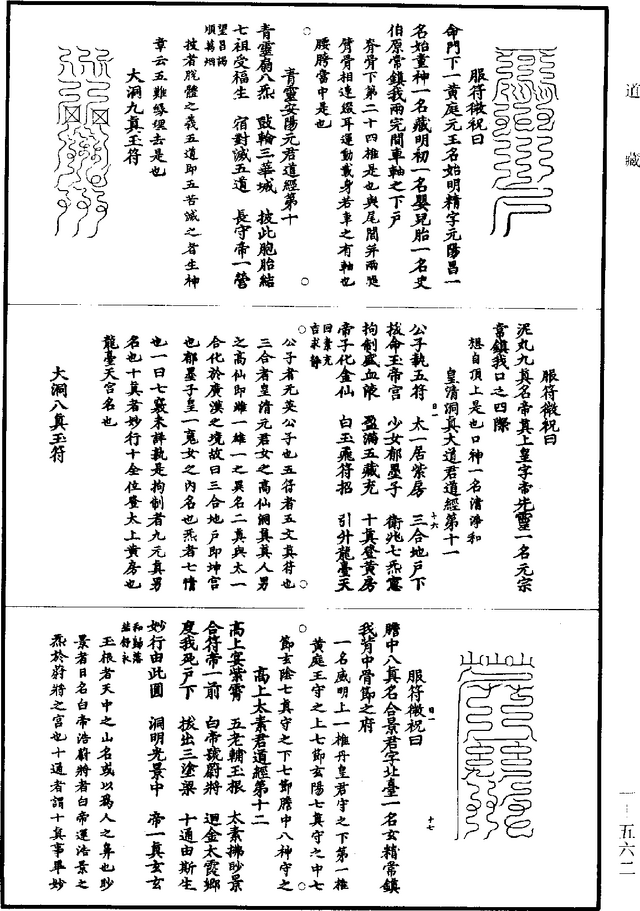 道藏
服符微祝曰
命門下一黄庭元王名始明精字元陽昌一
名始童神一名藏明初一名嬰兒胎一名史
伯原常鎮我兩兂間車軸之下戶
脊骨下第二十四椎是也與尾閭并兩
臂骨相連綴耳運動載身若車之有軸也
腰胯當中是也
青靈安陽元君道經第十
青靈扇八炁 鼓輪三華城 披此胞胎結
七祖受福生 宿對滅五道 長守帝一營
望昌揚
順萬炯
披者脫體之義五道即五苦滅之者生神
章云五難緣理去是也
大洞九真玉符
服符微祝曰
泥丸九真名帝真上皇字帝先靈一名元宗
常鎮我口之四際
想自頂上是也口神一名清浄和
皇清洞真大道君道經第十一
公子執五符 太一居紫房 三合地戶下
拔命玉帝宮 少女郁墨子 衛兆七炁
拘制盛血液 盈滿五藏充 十真登黄房
帝子化金仙 白玉飛符招 引升龍臺天
回素充
吉求静
公子者无英公子也五符者五文真符也
三合者皇清元君女之高仙綱真真人男
之高仙即雌一雄一之異名二真與太一
合化於廣漢之境故曰三合地戶即坤宮
也郁墨子皇一魂女之内名也炁者七情
也一曰七竅未詳孰是拘制者九元真男
名也十真者妙行十全位登太上黄房也
龍臺天宮名也
大洞八真玉符
服符微祝曰
膽中八真名合景君字北臺一名玄精常鎮
我背中骨節之府
一名威明上一椎丹皇君守之下第一椎
黄庭王守之上七節玄陽七真守之中七
節玄陰七真守之下七節膽中八神守之
高上太素君道經第十二
高上宴紫霄 五老輔玉根 太素拂眇景
合符帝一前 白帝號蔚將 迴金太霞鄉
度我死戶下 拔出三塗梁 十通由斯生
妙行由此圓 洞明光景中 帝一真玄玄
玉根者天中之山名或以爲人之鼻也眇
景者日名白帝浩蔚將者白帝運浩景之
炁於蔚將之宮也十通者謂十真事畢妙
一一五六二